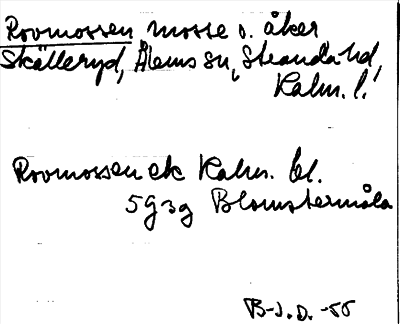 Rovmossen mosse o. åker
Skälleryd, Ålems sn, Stranda hd,
Kalm. l.
Rovmossen ek Kalm. bl.
5g3g Blomstermåla
B-J.D. -55